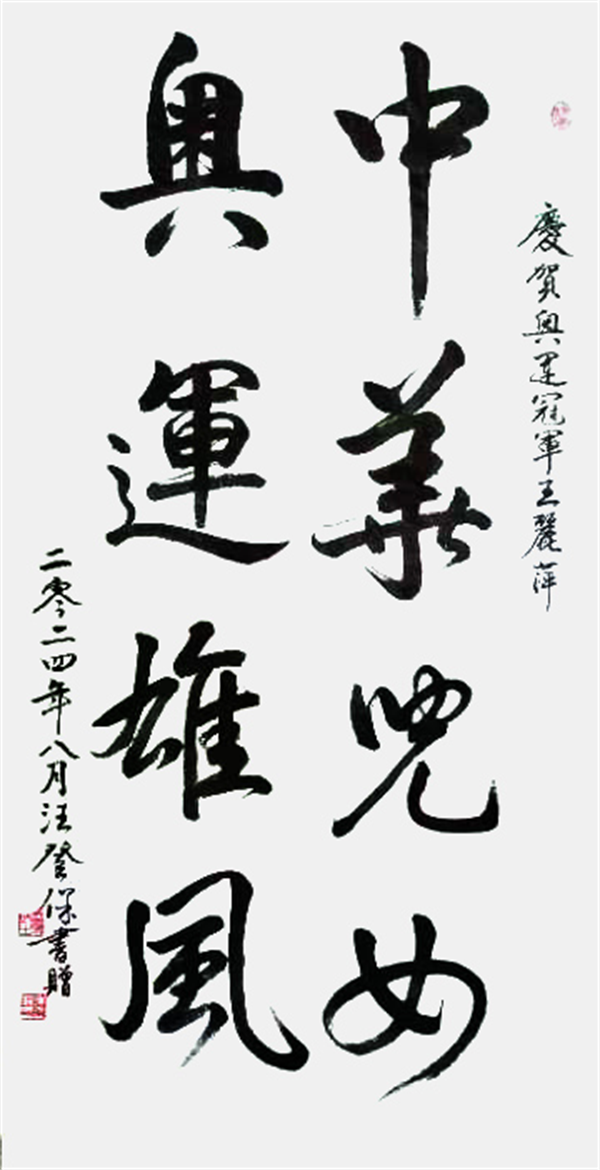 慶賀奧運冠軍王麗萍
中華兒女
奧運雄風
二零二四年八月汪登保書贈